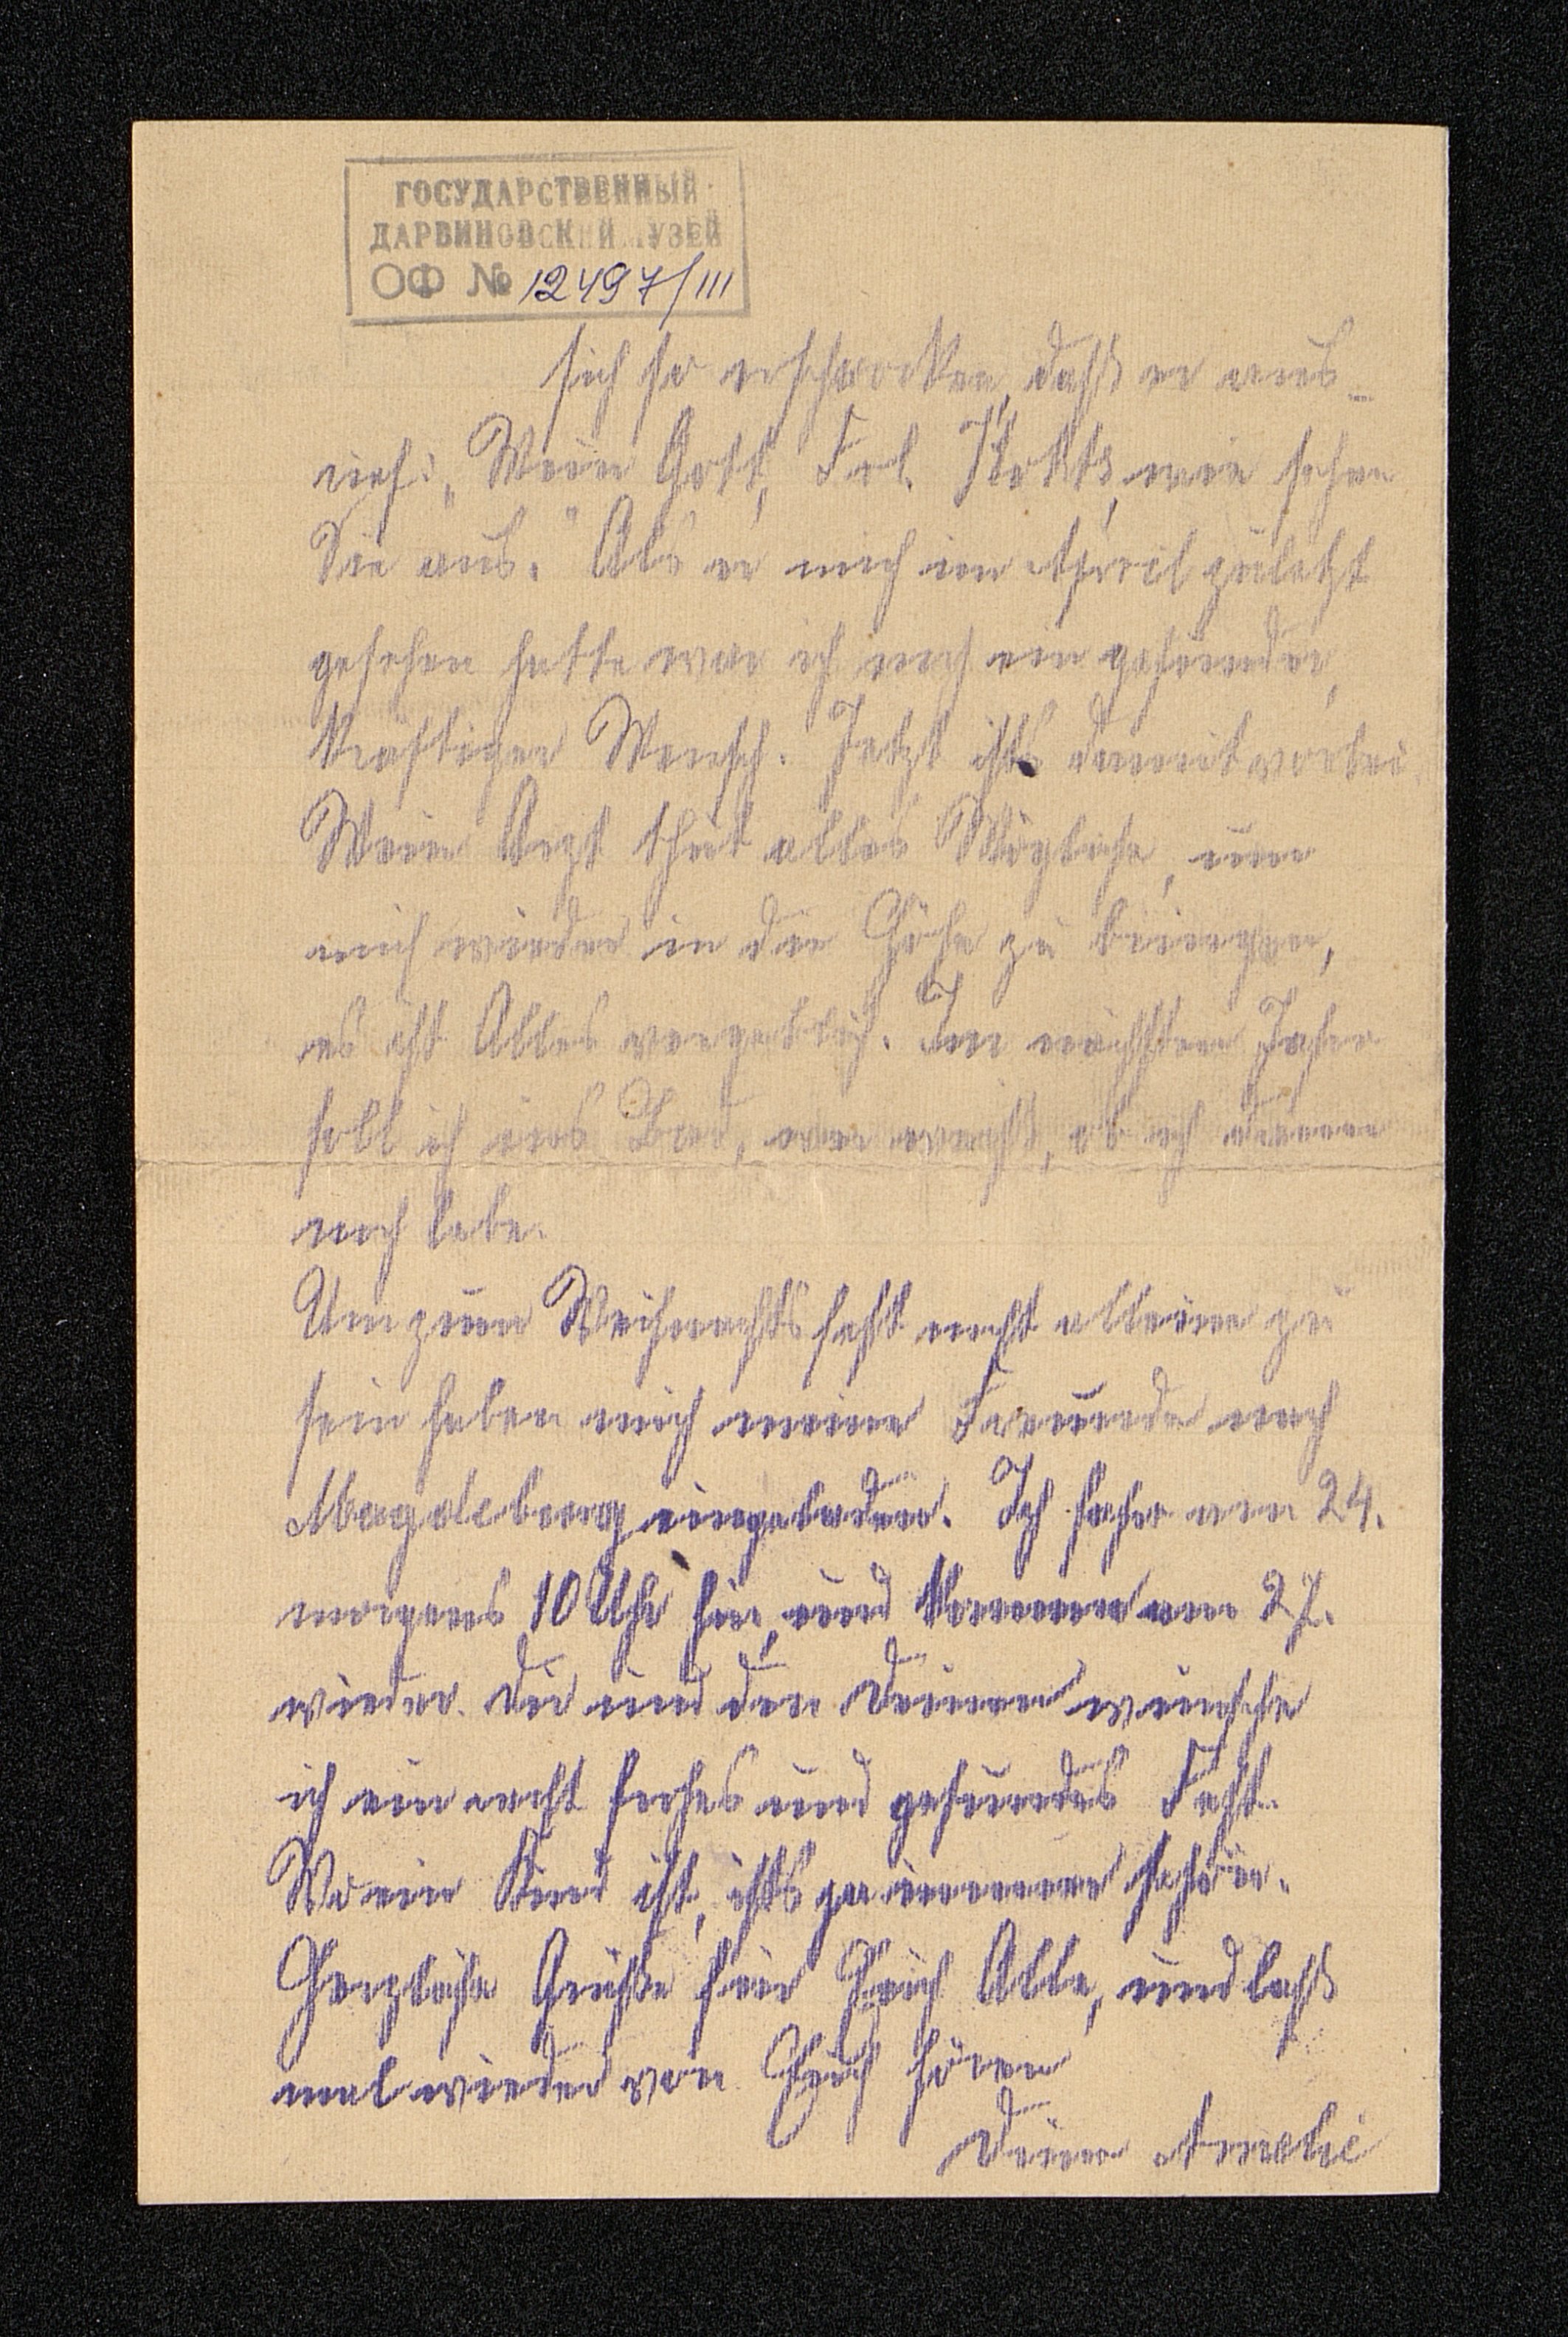 ГОСУДАРСТВЕННЫЙ
ДАРВИНОВСКИЙ МУЗЕЙ
ОФ № 12497/III
sich so erschrocken, dass er aus-
rief: „Mein Gott, Frl. Kohts, wie sehen
Sie aus." Als er mich im April zuletzt
gesehen hatte war ich noch ein gesunder,
kräftiger Mensch. Jetzt ists damit vorbei.
Mein Arzt thut alles Mögliche, um
mich wieder in die Höhe zu bringen,
es ist Alles vergeblich. Im nächsten Jahre
soll ich ins Bad, wer weiss, ob ich dann
noch lebe.
Um zum Weihnachtsfest nicht allein zu
sein haben mich meine Freunde nach
Magdeburg eingeladen. Ich fahre am 24.
morgens 10 Uhr hin, und komme am 27.
wieder. Dir und den Deinen wünsche
ich ein recht frohes und gesundes Fest.
Wo ein Kind ist, ists ja immer schön.
Herzliche Grüsse für Euch Alle, und lass
mal wieder von Euch hören
Deine Amelie